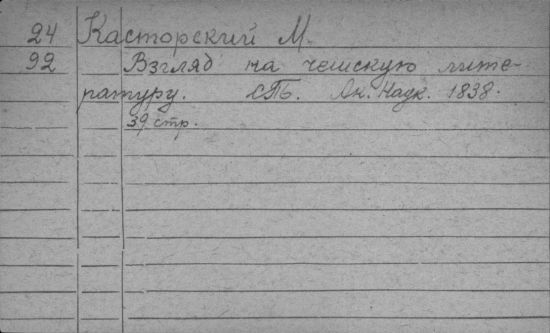 24 Касторский М.
92 Взгляд на чешскую лите-
ратуру. СПБ. Ак. Наук. 1838.
39 стр.